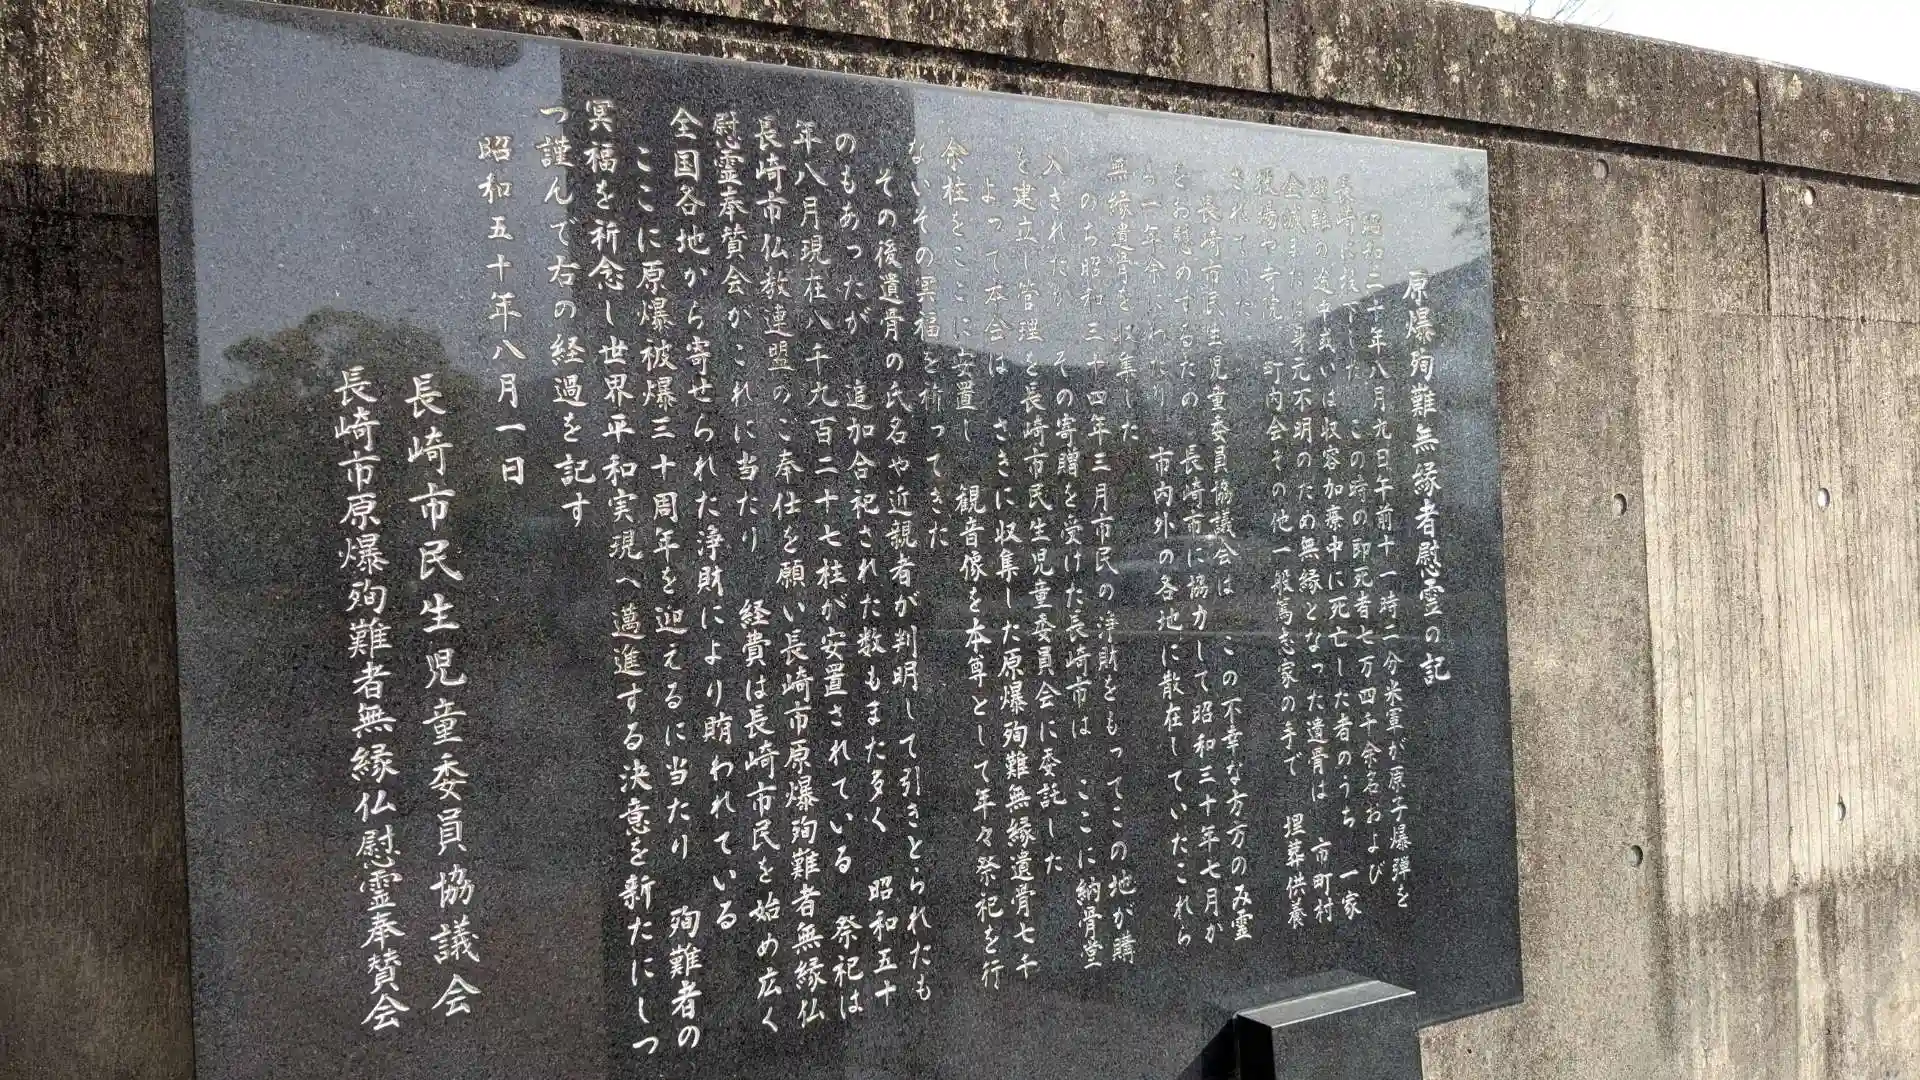 原爆殉難無縁者慰霊の記
昭和二十年八月九日午前十一時二分米軍が原子爆弾を
長崎に投下した この時の即死者七万四千余名および
避難の途中或いは収容加療中に死亡した者のうち 一家
全滅または身元不明のため無縁となった遺骨は 市町村
役場や寺院 町内会その他一般篤志家の手で 埋葬供養
されていた
長崎市民生児童委員協議会は この不幸な方方のみ霊
をお慰めするため 長崎市に協力して昭和三十年七月か
ら一年余にわたり 市内外の各地に散在していたこれら
無縁遺骨を収集した
のち昭和三十四年三月市民の浄財をもってこの地が購
入されたが その寄贈を受けた長崎市は ここに納骨堂
を建立し管理を長崎市民生児童委員会に委託した
よって本会は さきに収集した原爆殉難無縁遺骨七千
余柱をここに安置し 観音像を本尊として年々祭祀を行
ないその冥福を祈ってきた
その後遺骨の氏名や近親者が判明して引きとられたも
のもあったが 追加合祀された数もまた多く 昭和五十
年八月現在八千九百二十七柱が安置されている 祭祀は
長崎市仏教連盟のご奉仕を願い長崎市原爆殉難者無縁仏
慰霊奉賛会がこれに当たり 経費は長崎市民を始め広く
全国各地から寄せられた浄財により賄われている
ここに原爆被爆三十周年を迎えるに当たり 殉難者の
冥福を祈念し世界平和実現へ邁進する決意を新たにしつ
つ謹んで右の経過を記す
昭和五十年八月一日
長崎市民生児童委員協議会
長崎市原爆殉難者無縁仏慰霊奉賛会